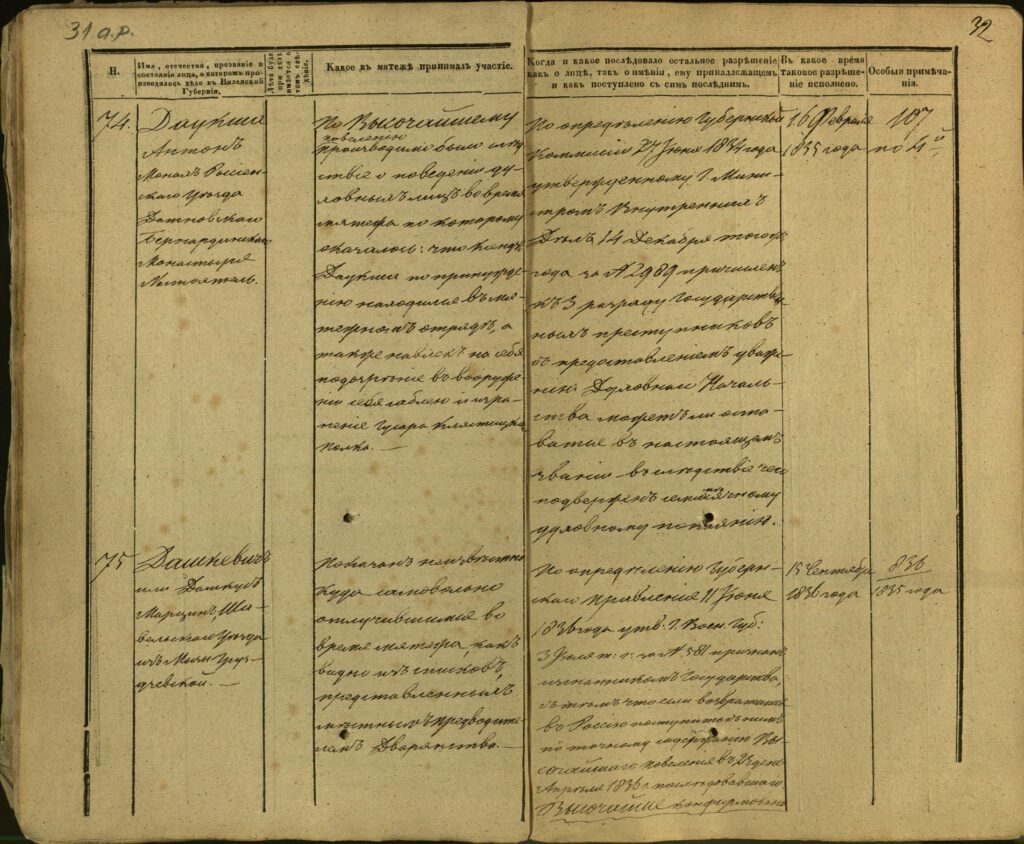 31 а.р.
32
Н.
Имя, отечество, прозваніе и
состояніе лица, о которомъ про-
изводилось дѣло въ Виленской
Губерніи.
Какое въ матежѣ принималъ участіе.
Когда и какое послѣдовало остальное разрѣшеніе
какъ о лицѣ, такъ о имѣніи, ему принадлежащемъ
и какъ поступлено съ симъ послѣднимъ.
Въ какое время
таковое разрѣше-
ніе исполнено.
Особыя примѣча-
нія.
74.
Даукша
Антонъ
Монахъ Россіен-
скаго Уѣзда
Датновскаго
Бернардинскаго
Монастыря
Настоятель.
По Высочайшему
повелѣнію
производимо было слѣд
ствіе о поведеніи ду-
ховныхъ лицъ во время
мятежа по которому
оказалось: что Ксендзъ
Даукша по принужде-
нію находился въ мя-
тежномъ отрядѣ, а
также навлекъ на себя
подозрѣніе въ вооруже-
ніи себя саблею и изра-
неніе Гусара Клястицка
полка. —
По опредѣленію Губернской
Коммисіи 27 Іюня 1834 года
утвержденному Г. Мини-
стромъ Внутреннихъ
Дѣлъ 14 Декабря того ж
года за N 2989 причисленъ
къ 3 разряду Государствен
ныхъ преступниковъ
съ предоставленіемъ уваже-
нію Духовнаго Началь-
ства можетъ ли оста-
ваться въ настоящемъ
званіи въ слѣдствіе чего
подверженъ
духовному покаянію.
16 Февраля
1835 года
107
по 4й
75
Дашкевичъ
или Дашкудъ
Марцинъ, Ша-
вельскаго Уѣзда
изъ Мѣст. Груз-
дчевской. —
Показанъ неизвѣстно
куда самовольно
отлучившимся во
время мятежа, какъ
видно изъ списковъ,
представленныхъ
мѣстнымъ предводите-
лемъ Дворянства. —
По опредѣленію Губерн-
скаго Правленія 11 Іюня
1836 года утв. Г. Воен. Губ:
3 Іюля т. г. за N 581 признанъ
изгнанникомъ Государства,
съ тѣмъ что если возвратится
въ Россію поступить съ нимъ
по точному содержанію Вы-
сочайшаго повелѣнія въ 22 день
Апрѣля 1836 г. послѣдовавшаго
Высочайше конфирмовано
15 Сентября
1836 года
836
1835 года